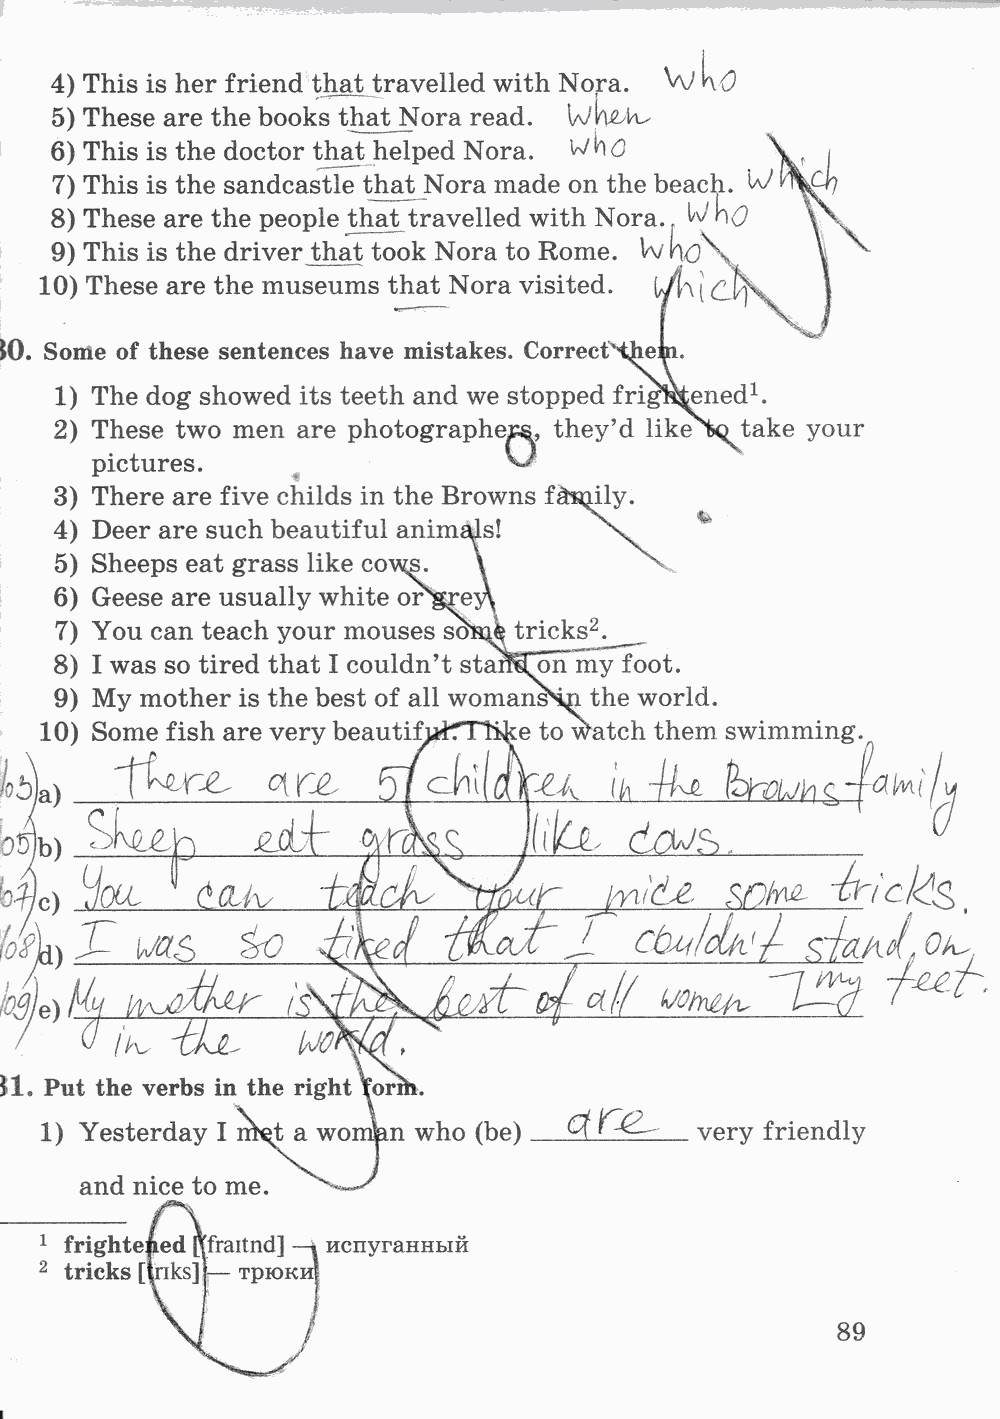 4) This is her friend that travelled with Nora. who
5) These are the books that Nora read. when
6) This is the doctor that helped Nora. who
7) This is the sandcastle that Nora made on the beach. which
8) These are the people that travelled with Nora. who
9) This is the driver that took Nora to Rome. who
10) These are the museums that Nora visited. which
30. Some of these sentences have mistakes. Correct them.
1) The dog showed its teeth and we stopped frightened¹.
2) These two men are photographers, they'd like to take your
pictures.
3) There are five childs in the Browns family.
4) Deer are such beautiful animals!
5) Sheeps eat grass like cows.
6) Geese are usually white or grey.
7) You can teach your mouses some tricks².
8) I was so tired that I couldn't stand on my foot.
9) My mother is the best of all womans in the world.
10) Some fish are very beautiful. I like to watch them swimming.
03) a) There are 5 children in the Browns family
05) b) Sheep eat grass like cows.
07) c) You can teach your mice some tricks.
08) d) I was so tired that I couldn't stand on
my feet.
09) e) My mother is the best of all women
in the world.
31. Put the verbs in the right form.
1) Yesterday I met a woman who (be) are very friendly
and nice to me.
¹ frightened ['fraɪtnd] — испуганный
² tricks [trɪks] — трюки
89